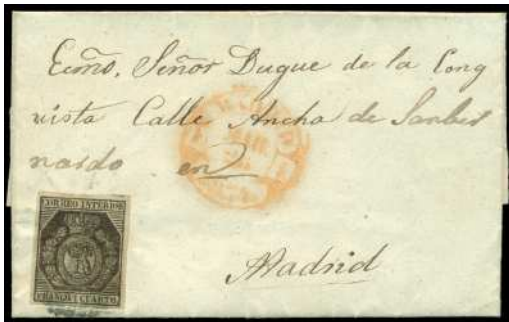 Ecmõ. Señor Duque de la Conq
uista Calle Ancha de Sanber
nardo en
Madrid
CORREO INTERIOR
FRANCO 1 CUARTO.